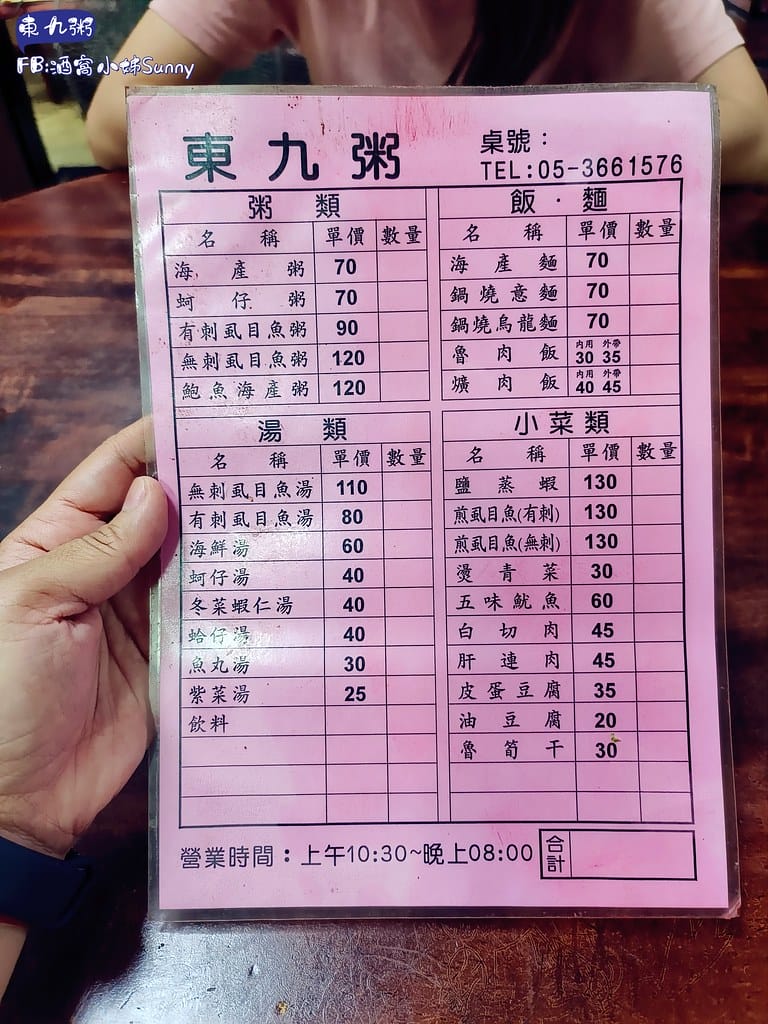 東九粥
FB:酒窩小姊Sunny
東九粥
桌號：
TEL:05-3661576
粥類
名稱 單價 數量
海產粥 70
蚵仔粥 70
有刺虱目魚粥 90
無刺虱目魚粥 120
鮑魚海產粥 120
飯·麵
名稱 單價 數量
海產麵 70
鍋燒意麵 70
鍋燒烏龍麵 70
魯肉飯 內用30 外帶35
爌肉飯 內用40 外帶45
湯類
名稱 單價 數量
無刺虱目魚湯 110
有刺虱目魚湯 80
海鮮湯 60
蚵仔湯 40
冬菜蝦仁湯 40
蛤仔湯 40
魚丸湯 30
紫菜湯 25
飲料
小菜類
名稱 單價 數量
鹽蒸蝦 130
煎虱目魚(有刺) 130
煎虱目魚(無刺) 130
燙青菜 30
五味魷魚 60
白切肉 45
肝連肉 45
皮蛋豆腐 35
油豆腐 20
魯筍干 30
營業時間：上午10:30~晚上08:00
合計